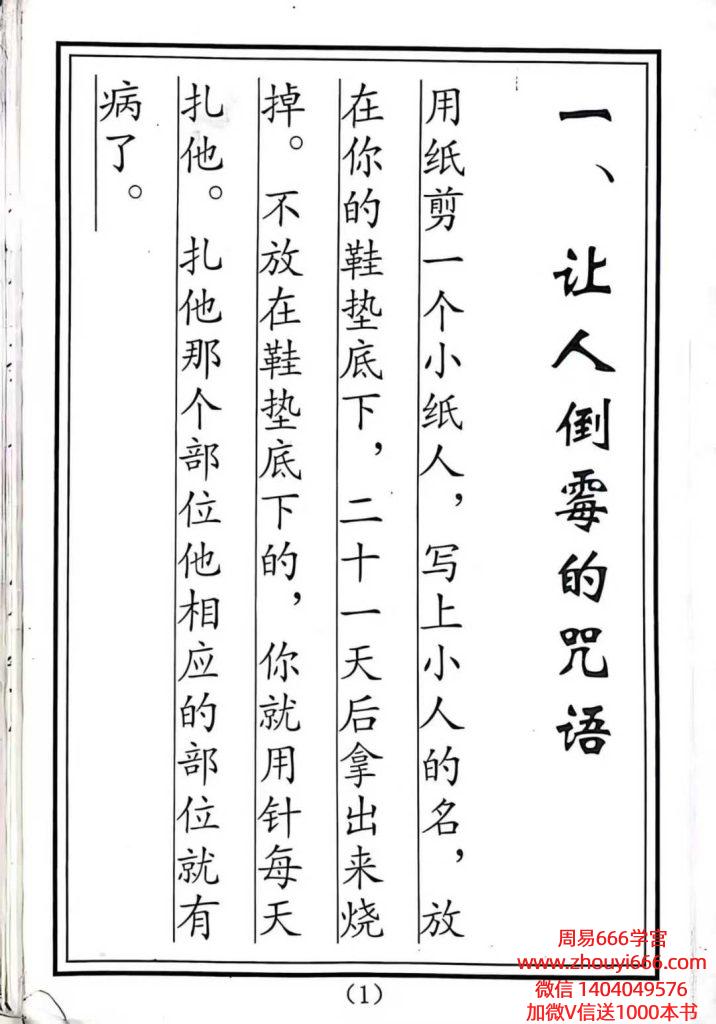 一、让人倒霉的咒语
用纸剪一个小纸人，写上小人的名，放
在你的鞋垫底下，二十一天后拿出来烧
掉。不放在鞋垫底下的，你就用针每天
扎他。扎他那个部位他相应的部位就有
病了。
(1)
周易666学宫
www.zhouyi666.com
微信 1404049576
加微V信送1000本书